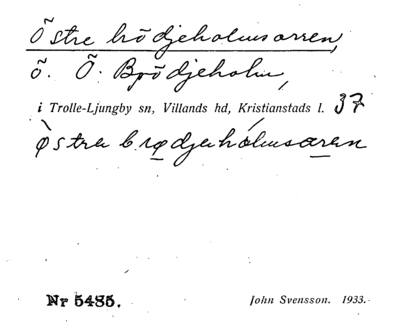 Östre brödjeholmsarren,
ö. Ö. Brödjeholm,
i Trolle-Ljungby sn, Villands hd, Kristianstads l. 37
østrer brødjerhólmsaren
Nr 5485.
John Svensson. 1933.